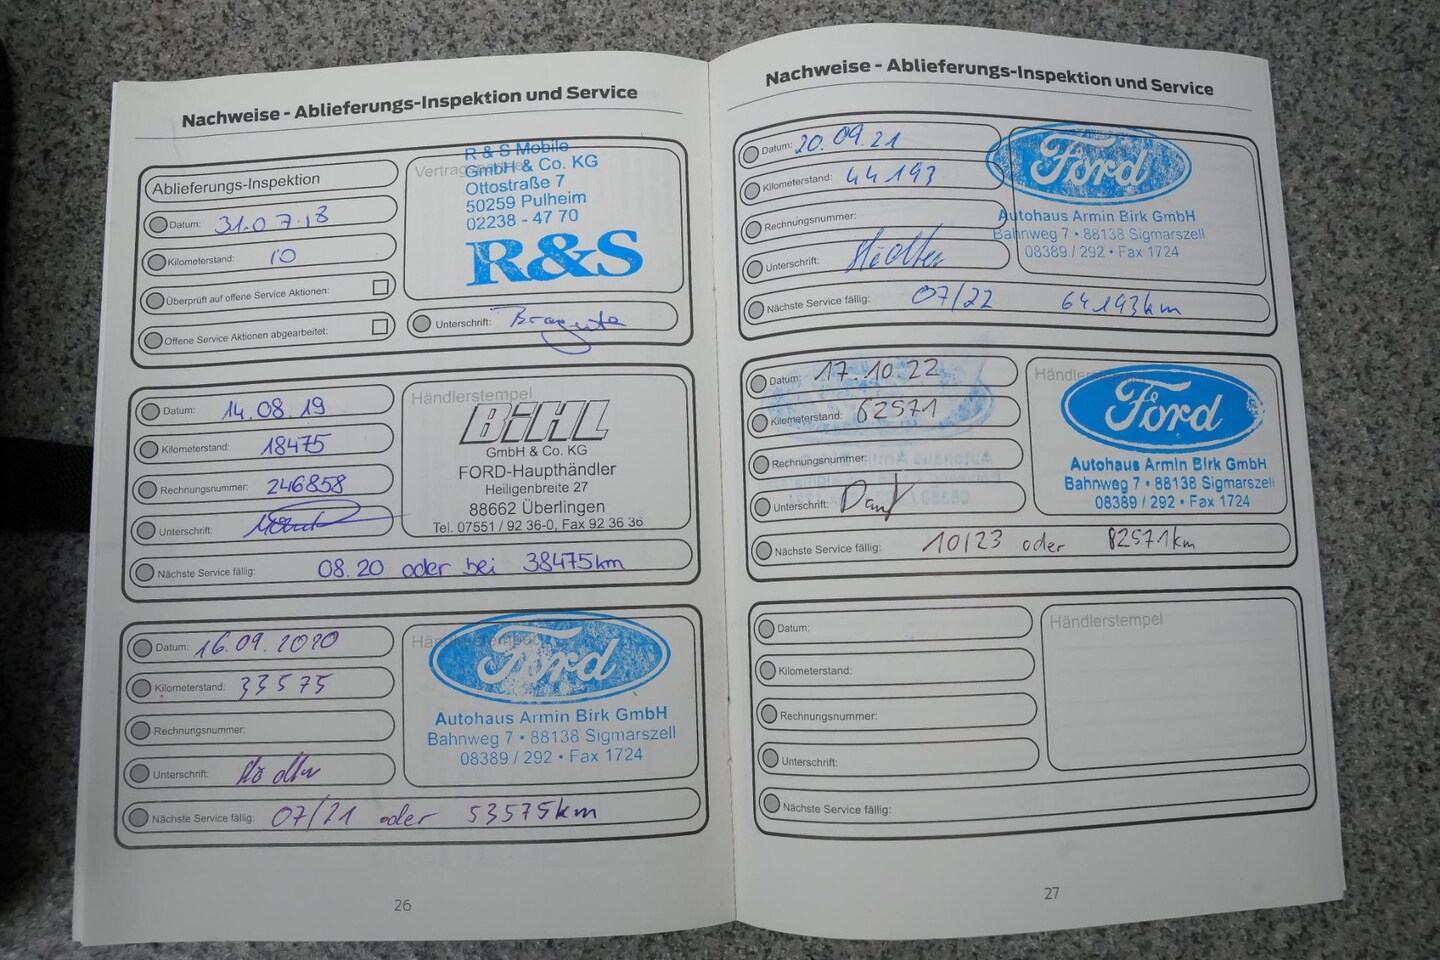 Nachweise - Ablieferungs-Inspektion und Service
Ablieferungs-Inspektion
Datum: 31.07.18
Kilometerstand: 10
Überprüft auf offene Service Aktionen:
Offene Service Aktionen abgearbeitet:
R & S Mobile
GmbH & Co. KG
Ottostraße 7
50259 Pulheim
02238 - 47 70
R&S
Unterschrift:
Datum: 14.08.19
Kilometerstand: 18475
Rechnungsnummer: 246858
Unterschrift:
Händlerstempel
BiHL
GmbH & Co. KG
FORD-Haupthändler
Heiligenbreite 27
88662 Überlingen
Tel. 07551 / 92 36-0, Fax 92 36 36
Nächste Service fällig: 08.20 oder bei 38475km
Datum: 16.09.2020
Kilometerstand: 33575
Rechnungsnummer:
Unterschrift:
Händlerstempel
Ford
Autohaus Armin Birk GmbH
Bahnweg 7 • 88138 Sigmarszell
08389 / 292 • Fax 1724
Nächste Service fällig: 07/21 oder 53575km
26
Nachweise - Ablieferungs-Inspektion und Service
Datum: 20.09.21
Kilometerstand: 44193
Rechnungsnummer:
Unterschrift:
Ford
Autohaus Armin Birk GmbH
Bahnweg 7 • 88138 Sigmarszell
08389 / 292 • Fax 1724
Nächste Service fällig: 07/22 64193km
Datum: 17.10.22
Kilometerstand: 62571
Rechnungsnummer:
Unterschrift:
Ford
Autohaus Armin Birk GmbH
Bahnweg 7 • 88138 Sigmarszell
08389 / 292 • Fax 1724
Nächste Service fällig: 10/23 oder 82571km
Datum:
Kilometerstand:
Rechnungsnummer:
Unterschrift:
Händlerstempel
Nächste Service fällig:
27